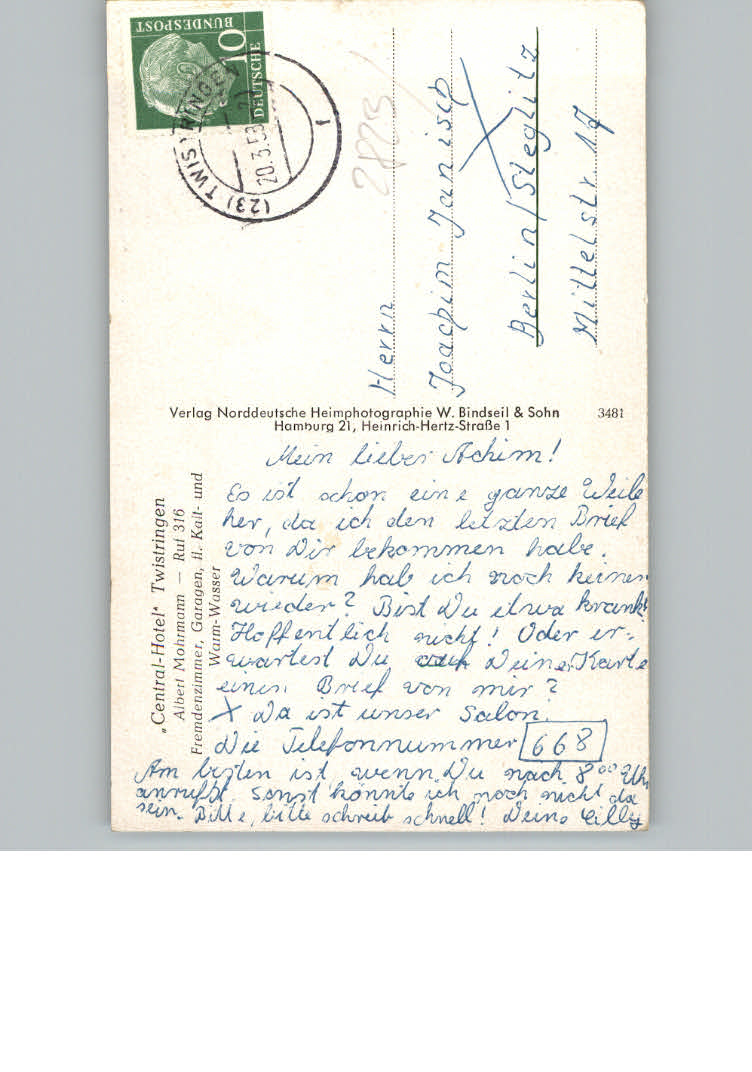 DEUTSCHE
BUNDESPOST
10
(23) TWISTRINGEN
20.3.58
1
2883
Herrn
Joachim Janisch
Berlin/Steglitz
Mittelstr 17
Verlag Norddeutsche Heimphotographie W. Bindseil & Sohn 3481
Hamburg 21, Heinrich-Hertz-Straße 1
„Central-Hotel" Twistringen
Albert Mohrmann — Ruf 316
Fremdenzimmer, Garagen, fl. Kalt- und
Warm-Wasser
Mein lieber Achim!
Es ist schon eine ganze Weile
her, da ich den letzten Brief
von Dir bekommen habe.
Warum hab ich noch keinen
wieder? Bist Du etwa krank?
Hoffentlich nicht! Oder er-
wartest Du Deiner Karte
einen Brief von mir?
X Da ist unser Salon.
Die Telefonnummer 668
Am besten ist, wenn Du nach 8⁰⁰ Uhr
anrufst. Sonst könnte ich noch nicht da
sein. Bitte, bitte schreib schnell! Deine Cilly